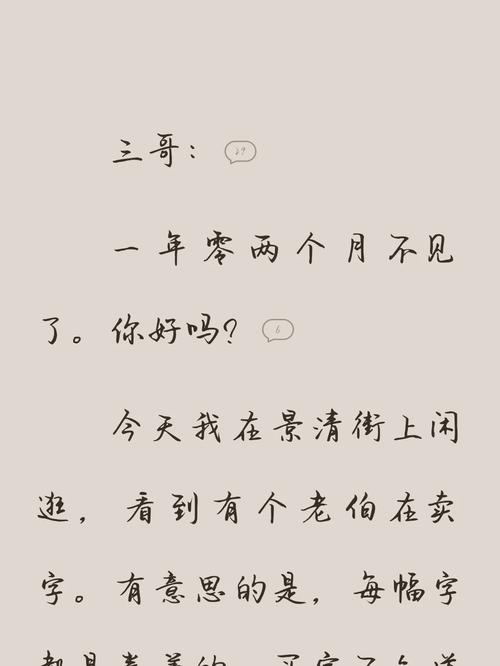 三哥： 29
一年零两个月不见
了。你好吗？ 6
今天我在景清街上闲
逛，看到有个老伯在卖
字。有意思的是，每幅字